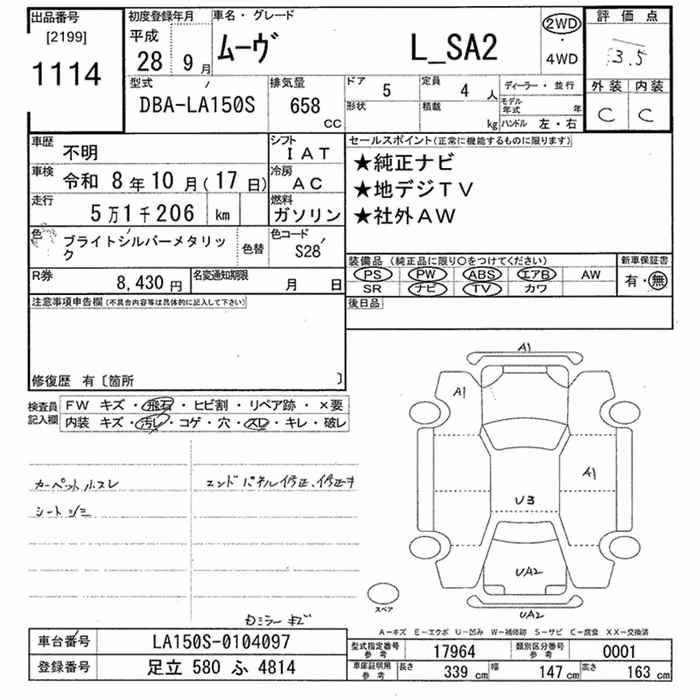 出品番号 初度登録年月 車名・グレード 2WD 評価点
[2199] 平成 ムーヴ L_SA2 ・ 3.5
1114 28年 9月 4WD
型式 排気量 ドア 定員 ディーラー・並行 外装 内装
DBA-LA150S 658 CC 5 4人 モデル年式 年 C C
形状 積載 kg ハンドル 左・右
車歴 不明 シフト IAT セールスポイント(正常に機能するものに限ります)
車検 令和 8年10月(17日) 冷房 AC ★純正ナビ
★地デジTV
走行 5万1千206 km 燃料 ガソリン ★社外AW
色 ブライトシルバーメタリック 色替 色コード S28
装備品(純正品に限り○をつけてください) 新車保証書
PS PW ABS エアB AW 有・無
R券 8,430円 名変通知期限 月 日 SR ナビ TV カワ
注意事項申告欄(不具合内容等は具体的に記入して下さい) 後日品
修復歴 有〔箇所 〕
検査員記入欄 FW キズ・飛石・ヒビ割・リペア跡・×要
内装 キズ・汚レ・コゲ・穴・スレ・キレ・破レ
A1
A1
カーペット小スレ エンドパネル修正、修正キ A1
シートシミ U3
UA2
スペア
UA2
Dミラーキズ
A-キズ E-エクボ U-凹み W-補修跡 S-サビ C-腐食 XX-交換済
車台番号 LA150S-0104097 型式指定番号 参考 17964 類別区分番号 参考 0001
登録番号 足立 580 ふ 4814 車庫証明用 参考 長さ 339 cm 幅 147 cm 高さ 163 cm